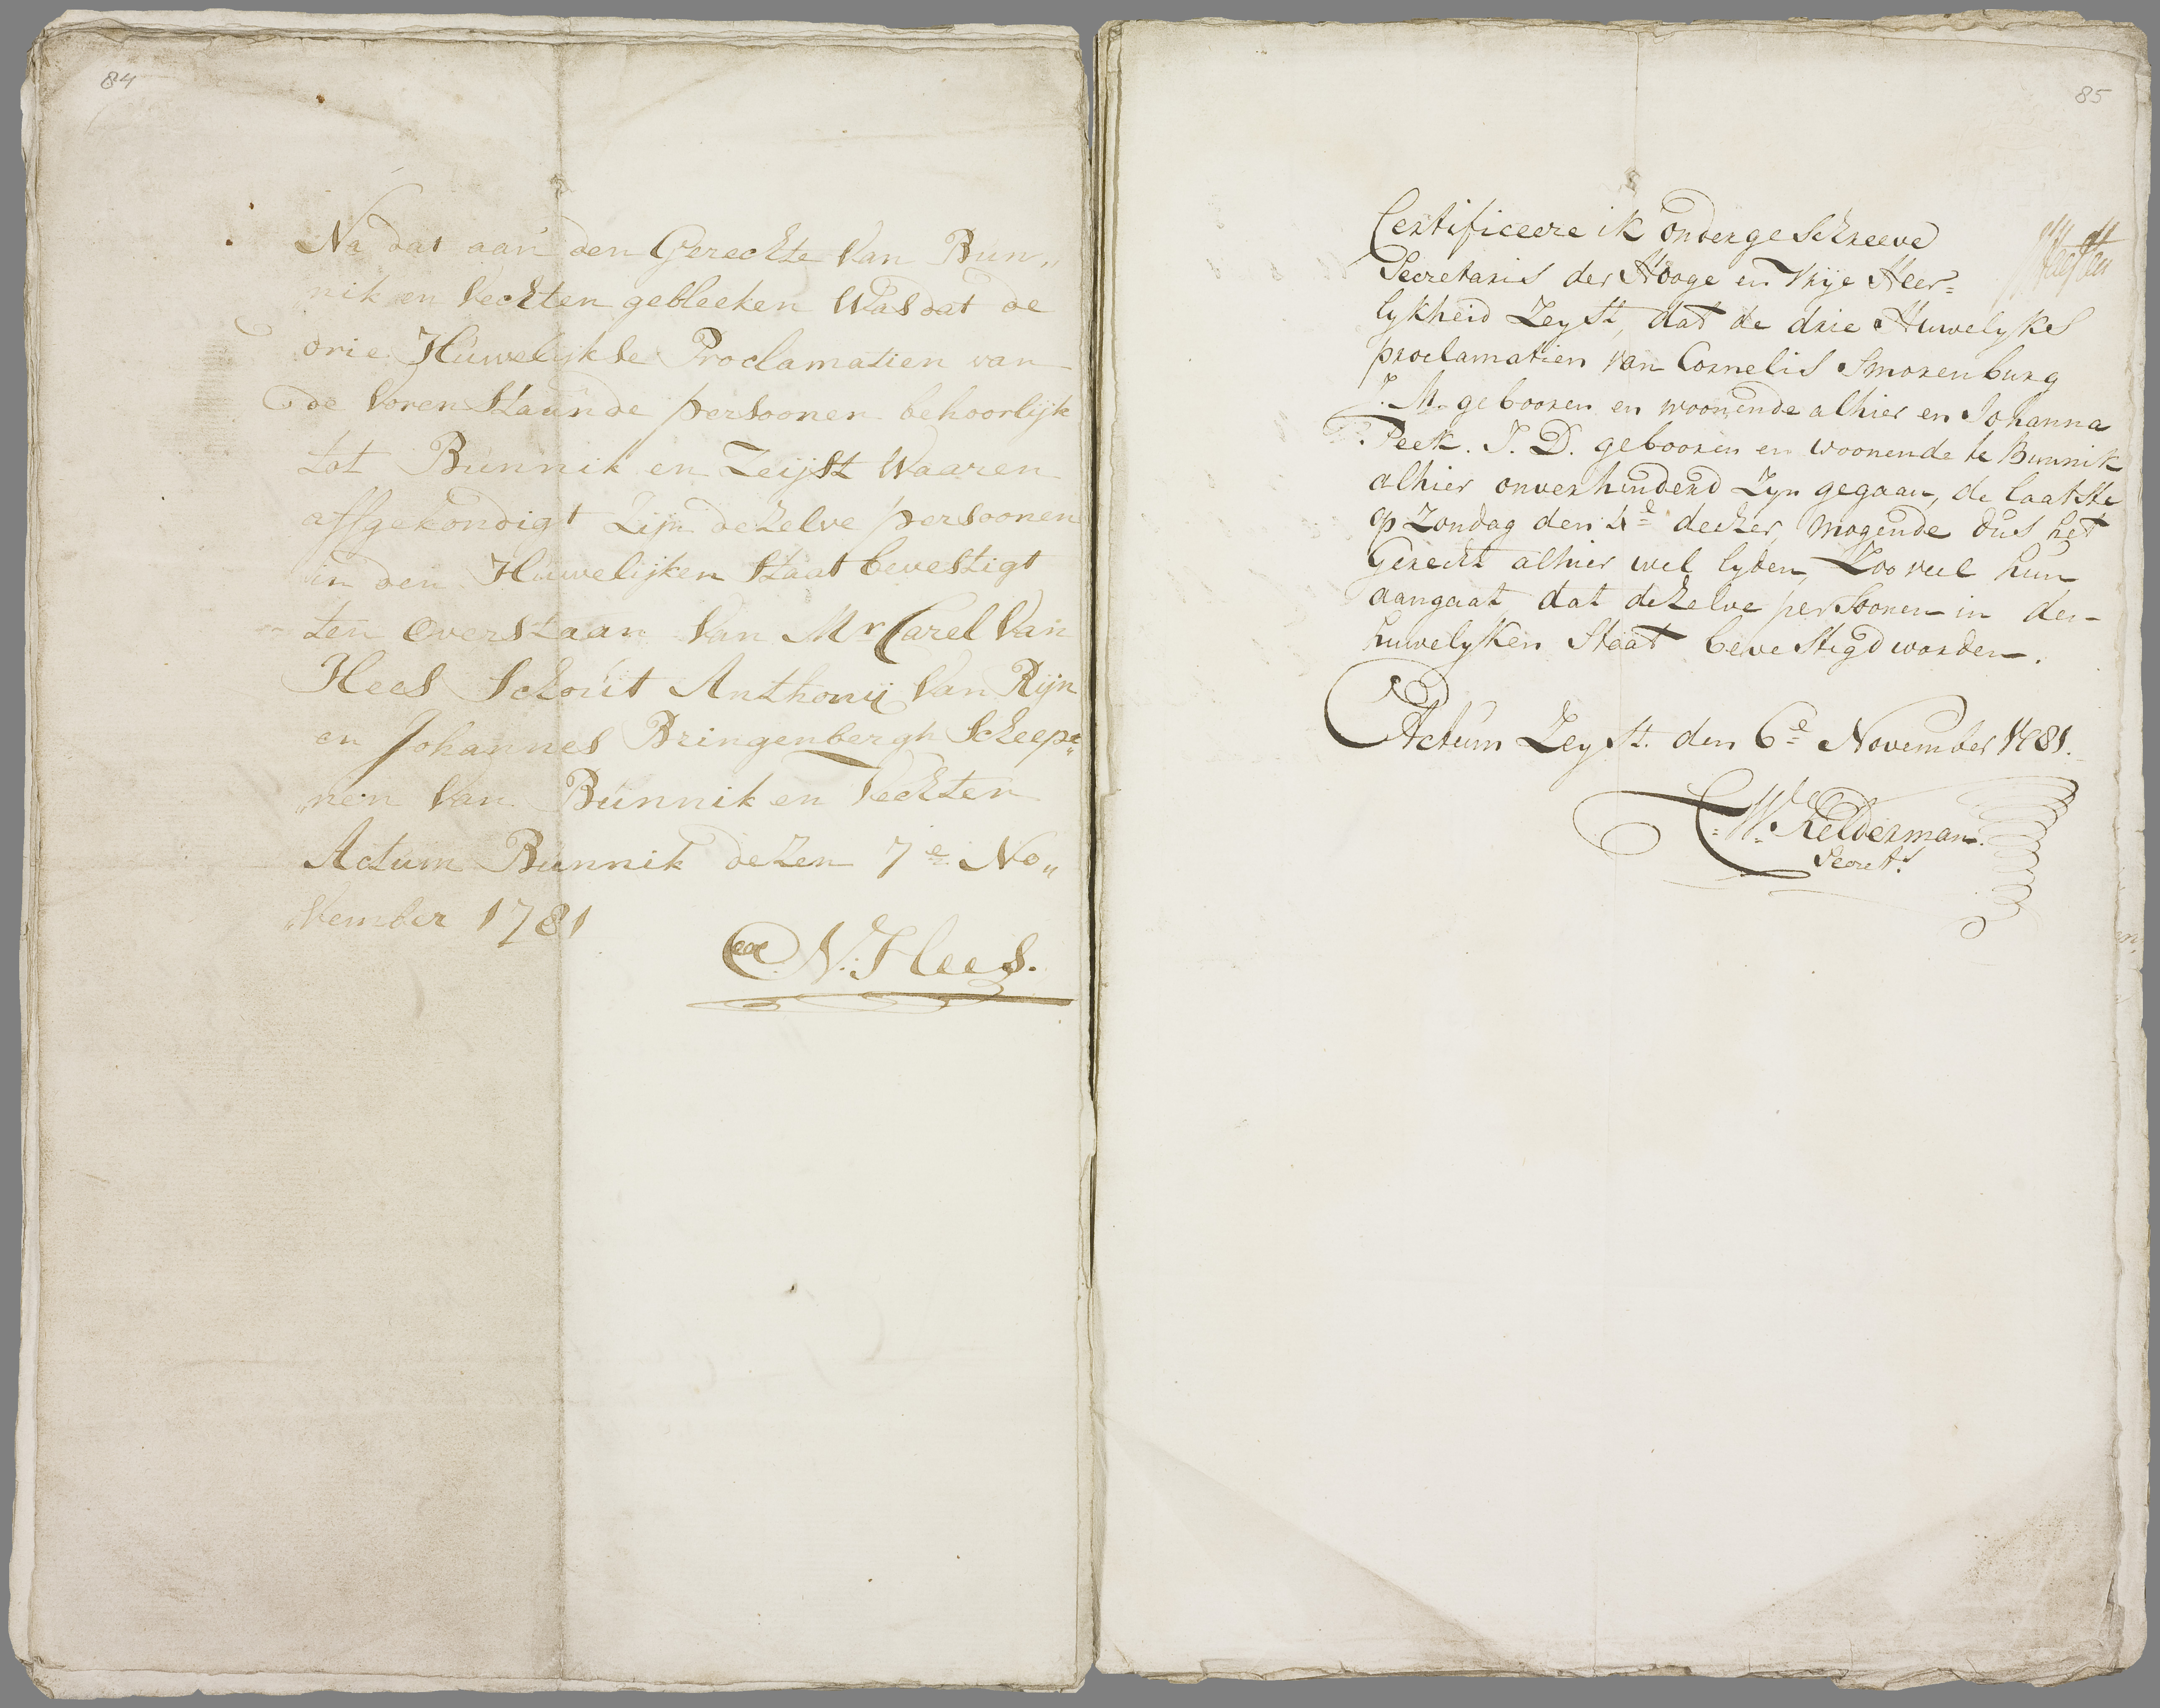 84
Na dat aan den Gerechte van Bun„
nik en Vechten gebleeken Was dat de
drie Huwelijkse Proclamatien van
de Voren staande persoonen behoorlijk
tot Bunnik en Zeijst Waaren
affgekondigt Zijn dezelve persoonen
in den Huwelijken Staat bevestigt
ten Overstaan van Mr Carel Van
Hees Schout Anthonij van Rijn
en Johannes Bringenbergh Scheep„
„nen van Bunnik en Vechten
Actum Bunnik dezen 7e No„
„vember 1781
V. Hees.
85
Certificeere ik ondergeschreeve
Secretaris der Hooge en Vrije Heer=
lykheid Zeyst, dat de drie Huwelykes
proclamatien van Cornelis Smorenburg
J. M. gebooren en woonende alhier en Johanna
Peek. J. D. gebooren en woonende te Bunnik
alhier onverhinderd Zyn gegaan, de laatste
op Zondag den 4e dezer, mogende dus het
Gerecht alhier wel lyden, Zoo veel hun
aangaat, dat dezelve persoonen in den
huwelyken Staat bevestigd worden.
Actum Zeyst. den 6e November 1781.
W. Kelderman.
Secret.s